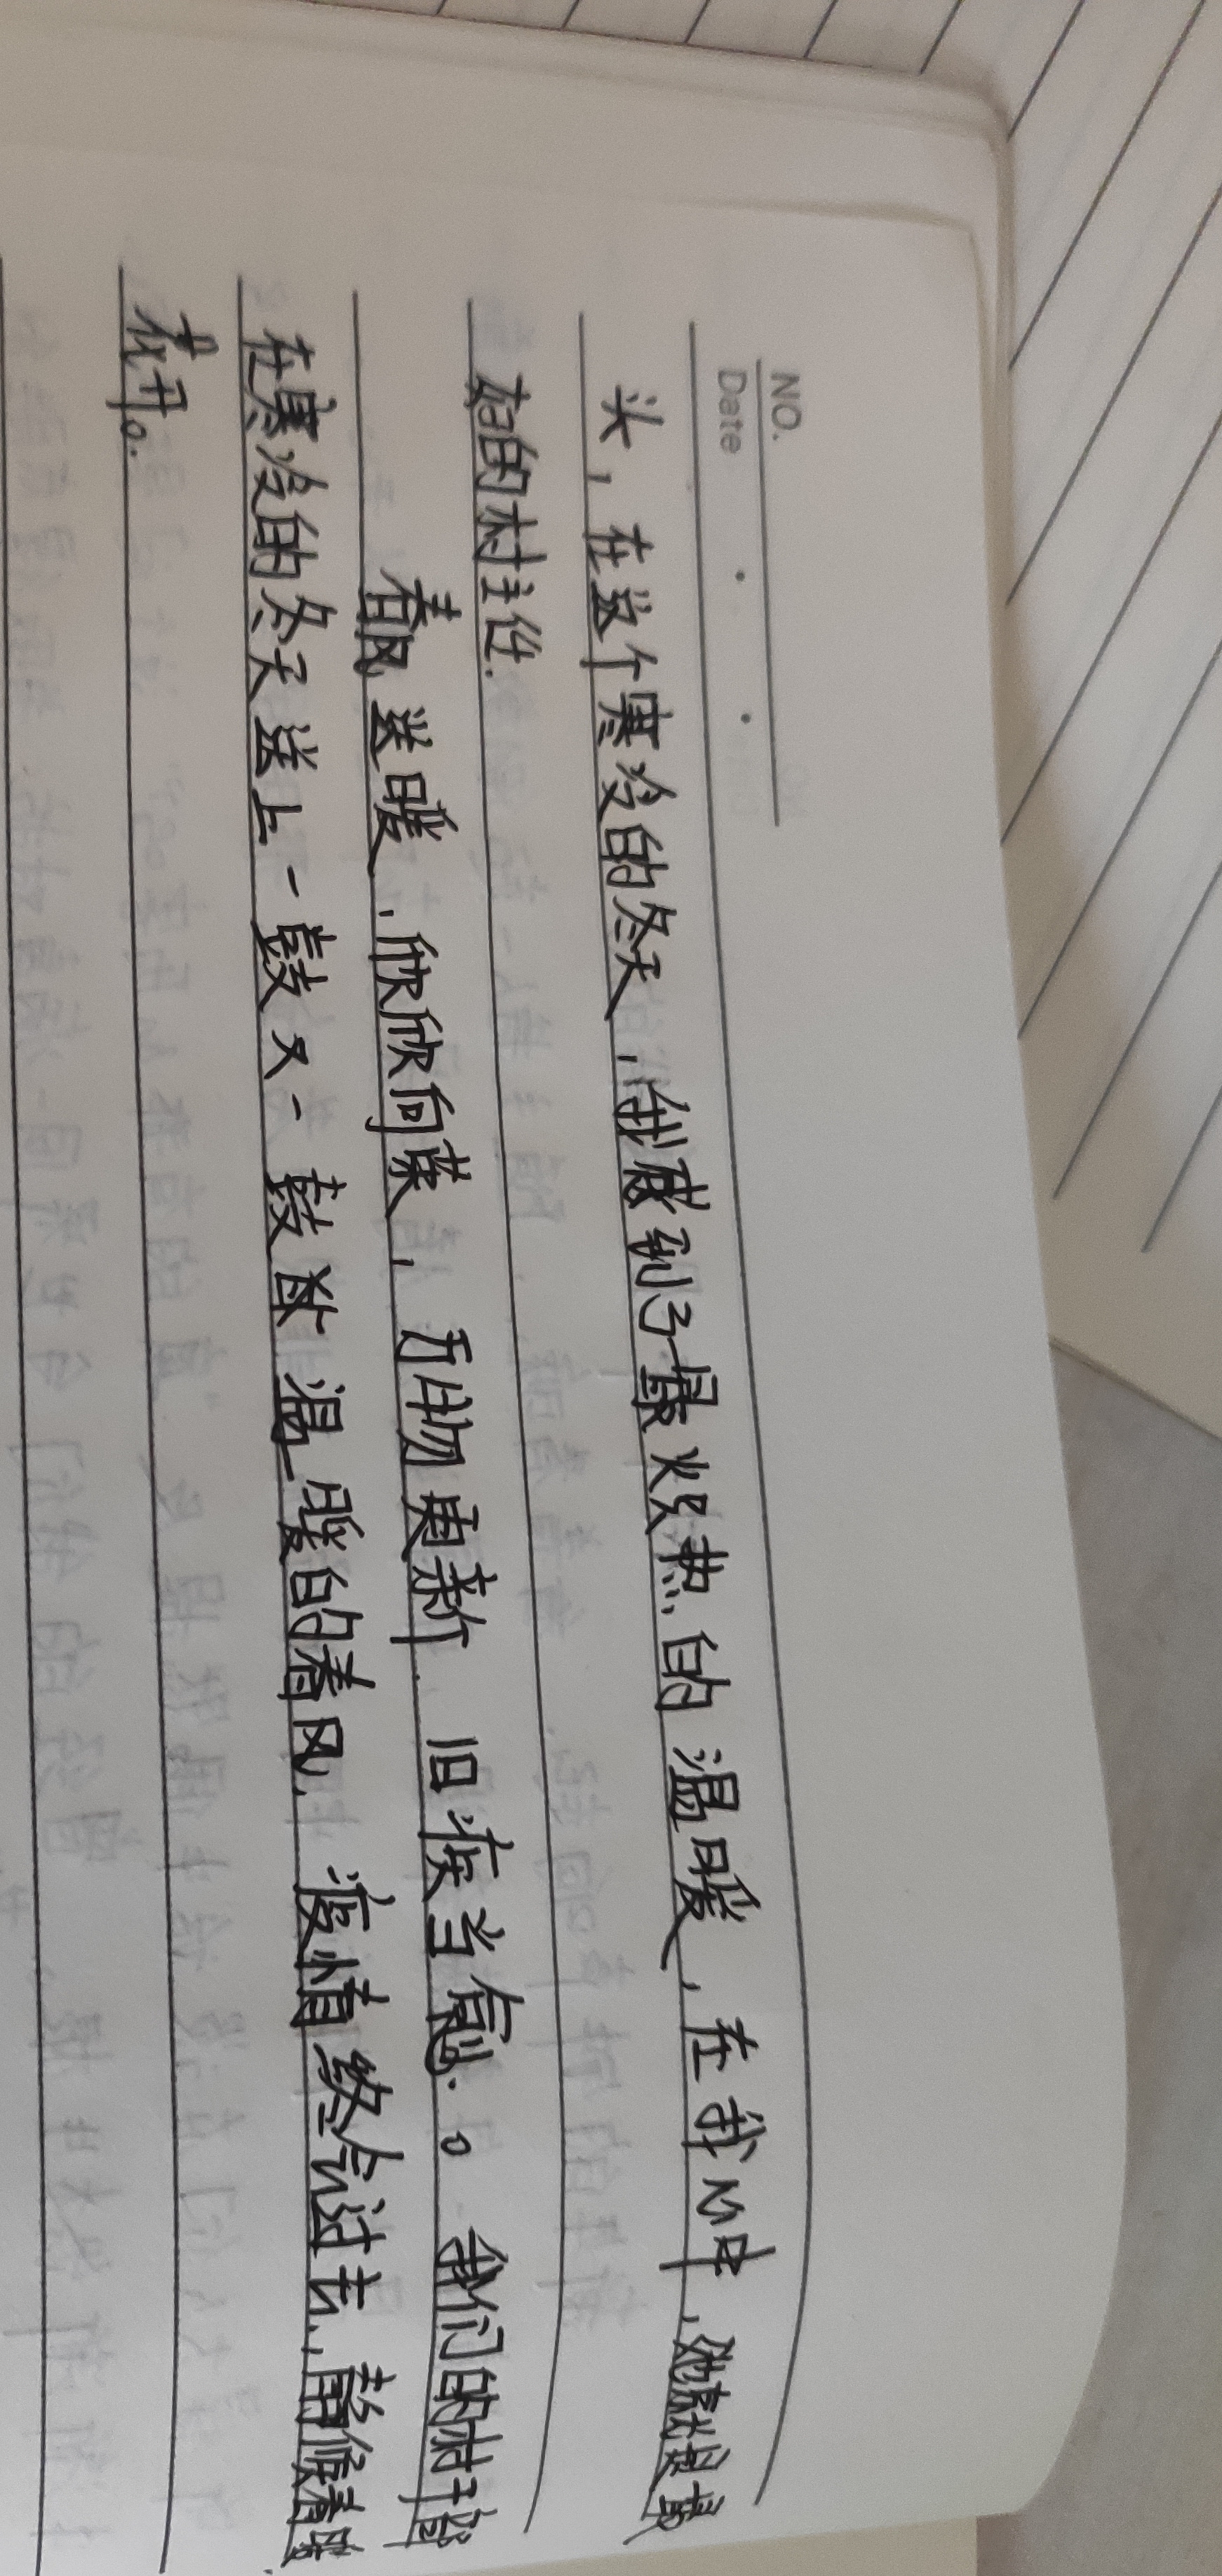 NO.
Date
头，在这个寒冷的冬天，我感到了最火热的温暖，在我心中，她就是最
好的村主任.
春风送暖，欣欣向荣，万物更新. 旧疾当愈.。我们的村主
在寒冷的冬天送上一鼓又一鼓 温暖的春风，疫情终会过去，静候春暖
花开。